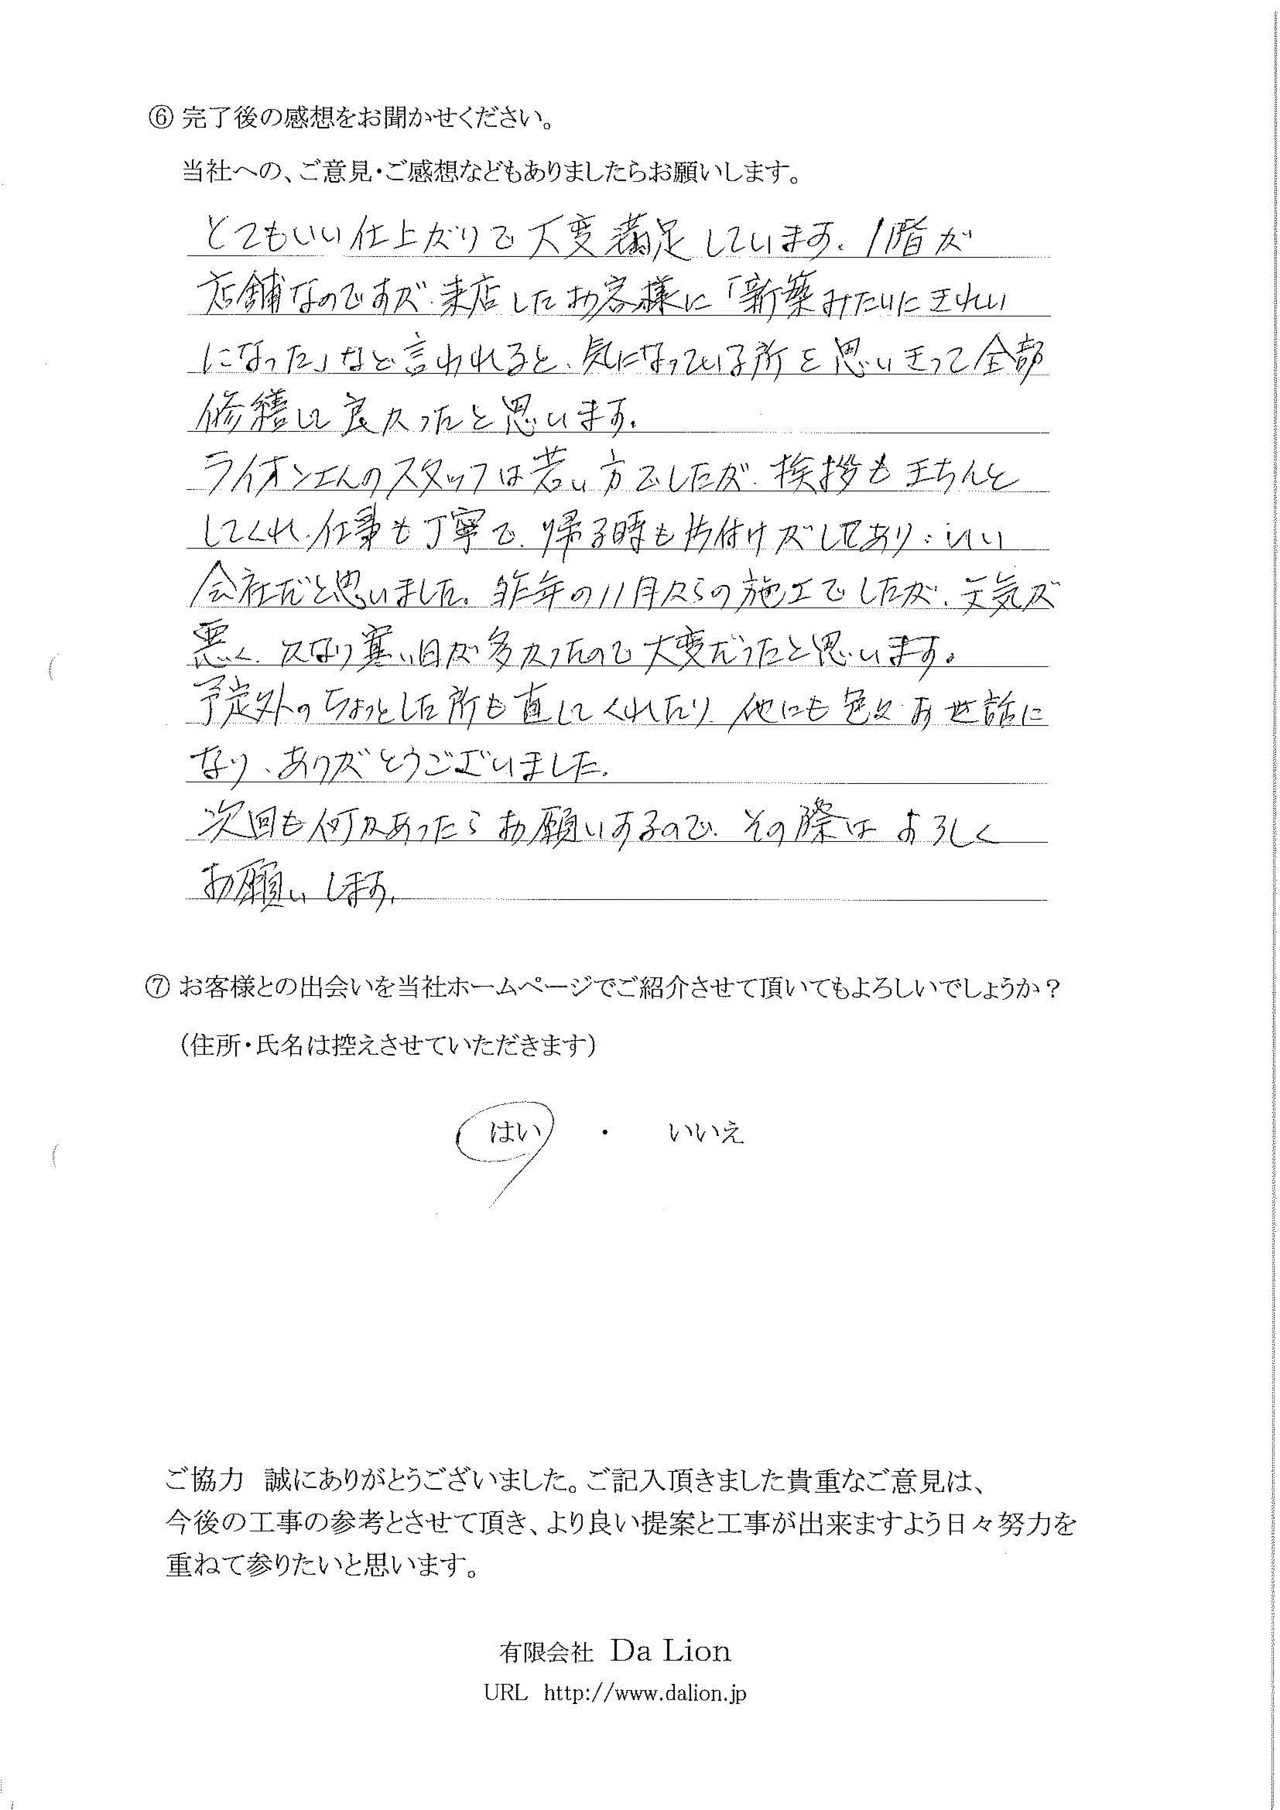 ⑥ 完了後の感想をお聞かせください。
当社への、ご意見・ご感想などもありましたらお願いします。
とてもいい仕上がりで大変満足しています。1階が
店舗なのですが、来店したお客様に「新築みたいにきれい
になった」など言われると、気になっている所を思いきって全部
修繕して良かったと思います。
ライオンさんのスタッフは若い方でしたが、挨拶もきちんと
してくれ、仕事も丁寧で、帰る時も片付けがしてあり、いい
会社だと思いました。昨年の11月からの施工でしたが、天気が
悪く、かなり寒い日が多かったので大変だったと思います。
予定外のちょっとした所も直してくれたり、他にも色々お世話に
なり、ありがとうございました。
次回も何かあったらお願いするので、その際はよろしく
お願いします。
⑦ お客様との出会いを当社ホームページでご紹介させて頂いてもよろしいでしょうか？
（住所・氏名は控えさせていただきます）
はい ・ いいえ
ご協力 誠にありがとうございました。ご記入頂きました貴重なご意見は、
今後の工事の参考とさせて頂き、より良い提案と工事が出来ますよう日々努力を
重ねて参りたいと思います。
有限会社 Da Lion
URL http://www.dalion.jp